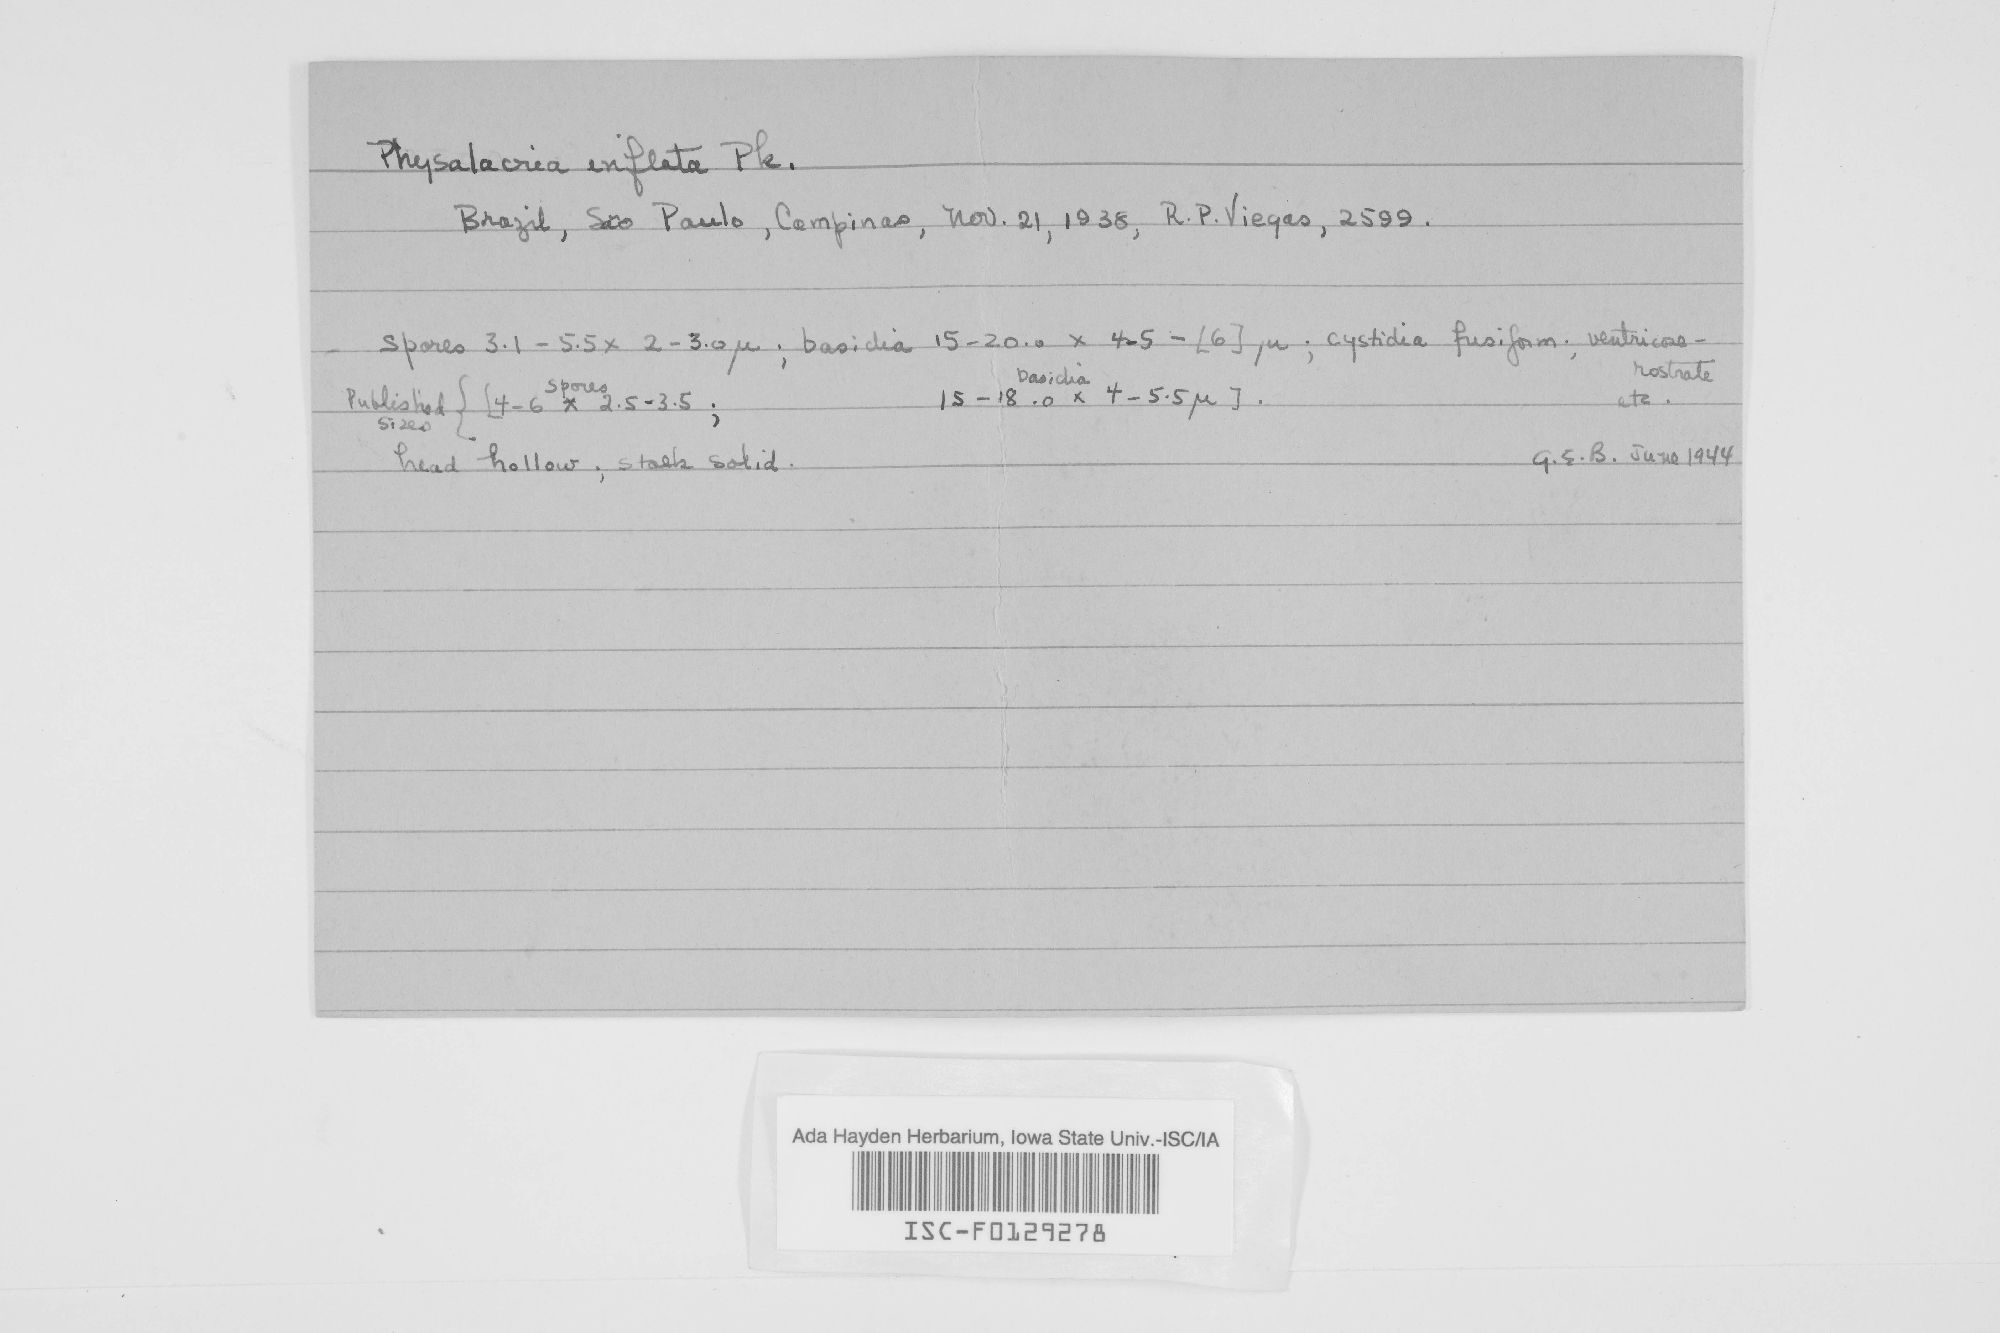 Physalacria inflata Pk.
Brazil, Sao Paulo, Campinas, Nov. 21, 1938, R.P. Viegas, 2599.
Spores 3.1 - 5.5 x 2 - 3.0 µ ; basidia 15 - 20.0 x 4-5 - [6] µ ; cystidia fusiform ; ventricose-
rostrate
etc.
Published
sizes { [4-6 spores x 2.5-3.5 ; 15 - 18.0 basidia x 4 - 5.5 µ ] .
head hollow ; stalk solid.
G.E.B. June 1944
Ada Hayden Herbarium, Iowa State Univ.-ISC/IA
ISC-F0129278